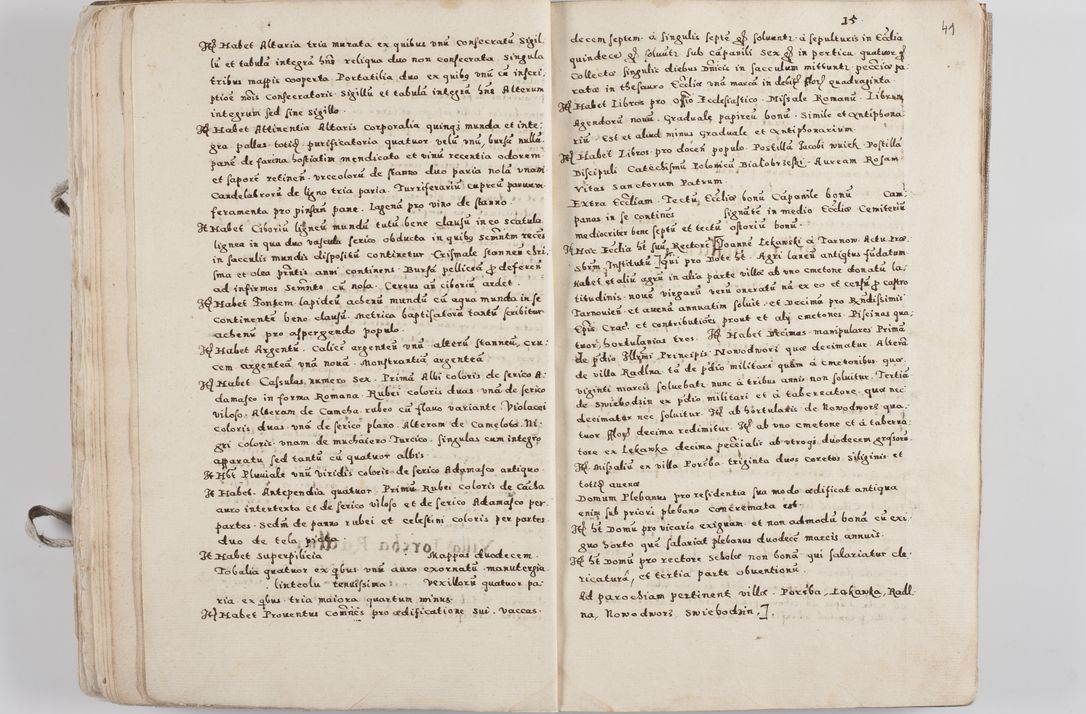 Itẽ Habet Altaria tria murata ex quibus vnũ consecratũ Sigil-
lũ et tabulã integrã hñs reliqua duo non consecrata. Singula
tribus mappis cooperta. Portatilia duo ex quibus vnũ cũ inscri-
ptioẽ nõis consecratoris. Sigillũ et tabulã integrã hñs Alterum
integrum sed sine sigillo.
Itẽ Habet Attinentia Altaris Corporalia quinqʒ munda et inte-
gra pallas totiđ purificatoria quatuor velũ vnũ, bursã nullã
panẽ de farina hostiatim mendicato et vinũ recentia odorem
et saporẽ retinen̄. Vrceolorũ de stanno duo paria nolã vnam
Candelabrorũ de ligno tria paria. Turriferariũ cupreũ paruum
feramenta pro pinsen̄ pane. Lagenã pro vino de stanno.
It Habet Ciboriũ ligneũ mundũ tutũ bene clausũ in eo scatula
lignea in qua duo vascula serico obducta in quibʒ Semñtm recẽs
in sacculis mundis dispositũ continetur. Crismale stanneũ chri-
sma et olea pñtis anni continens. Bursã pelliceã p̃ deferen̄
ad infirmos Semñto cũ nola. Cereus añ ciboriũ ardet.
Itẽ Habet Fontem lapideũ achenũ mundũ cũ aqua munda in se
continentẽ bene clausũ. Metrica baptisatorũ tantũ scribitur
achenũ pro aspergendo populo.
Itẽ Habet Argentũ. Calicẽ argenteũ vnũ alterũ stanneũ, cru-
cem argenteã vnã nouã. Monstrantiã argenteã
Itẽ Habet Casulas, numero sex. Primã Albi coloris de serico A-
damasco in forma Romana. Rubei coloris duas vnã de serico
viloso. Alteram de Camcha rubeo cũ flauo variante. Violacei
coloris duas vnã de serico plano. Alteram de Camelota. Ni-
gri coloris vnam de muchaiero Turcico. singulas cum integro
apparatu sed tantũ cũ quatuor albis
It Hẽt Pluuiale vnũ viridis coloris de serico Adamasco antiquo
It Habet Antependia quatuor. Primũ Rubei coloris de Cacha
auro intertexta et de serico viloso et de serico Adamasco per
partes. Sedm̃ de panno rubei et celestini coloris per partes
duo de tela picta.
It Habet superpilicia Mappas duodecem.
Tobalia quatuor ex qbus vnũ auro exornatũ manutergia
linteolũ tenuissima Vexillorũ quatuor pa-
ria ex qbus tria maiora quartum minus
Itẽ Habet Prouentus Com̃nẽs pro ædificatione sui. vaccas.
15
41
decem septem à singulis septẽ g̃f soluunt. à sepulturis in Ecclia
quindece g̃f soluũt. sub cãpanili sex g̃f in pertica quatuor g̃f
Collecta singulis diebus Dm̃icis in sacculum mittunt.
ratæ in thesauro Eccliæ vnã marcã in quadraginta.
Itẽ Habet Libros pro offĩo Ecclesiastico. Missale Romanũ. Librum
Agendorũ nouũ. Graduale papireũ bonũ. Simile et Antiphona-
riũ. Est et aliud minus Graduale et Antiphonarium.
Itẽ Habet Libros pro docen̄ populo. Postillã Jacobi wuiek. Postillã
Discipuli Catechismũ Polonicũ Białobrzeski. Auream Rosam
Vitas Sanctorum Patrum
Extra Eccliam. Tectũ Eccliæ bonũ Cãpanile bonũ Cam-
panas in se continẽs signatẽ in medio Eccliæ Cemiteriũ
mediocriter bene septũ et tectũ ostoriũ bonũ.
It Hæc Ecclia ht suũ Rectorẽ Joannẽ Lekawski à Tarnow. Actu præ-
sbr̃m Institutũ. qui pro dote ht. Agri laneũ antiqtus fũdatum
Habet et aliũ agrũ in alia parte villæ ab vno cmetone donatũ la-
titudinis nouẽ virgarũ verũ oneratũ nã ex eo et censũ p̃ castro
Tarnouien̄ et auenã annuatim soluit. et Decimã pro Rñdissimi
Epĩs Crac. et contributiões prout et alij cmetones. Piscinas qua-
tuor, hortulanias tres. Itẽ Habet Decimas manipulares Primã
de p̃dio Illmi Principis Nowodwori quæ decimatur. Alterã
de villa Radlna tã de p̃dio militari quàm à cmetoribus. quæ
viginti marcis soluebatʳ nunc à tribus annis non soluitur. Tertiã
de swiebodzin ex p̃dio militari et à tabernatore. quæ nec
decimatur nec soluitur. Itẽ ab hortulanis de Nowodwors qua-
tuor fflor̃ decima redimitur. Itẽ ab vno cmetone et à taberna-
tore ex Lekawka decima pecc̃ialis ab vtroqʒ duodecem grossorũ
Itẽ Missaliũ ex villa Porẽba triginta duos coretos siliginis et
totiđ auenæ
Domum Plebanus pro residentia sua modo ædificat antiqua
enim sub priori plebano concremata est
Itẽ ht Domũ pro vicario exiguam et non admodũ bonã cũ exi-
guo horto quẽ salariat plebanus duodecẽ marcis annuis.
Itẽ ht Domũ pro rectore scholæ non bonã qui salariatur cle-
ricaturã, et tertia parte obuentionũ.
Ad parochiam pertinent villæ. Porẽba, Lekawka, Radl-
na, Nowodwors. swiebodzin,